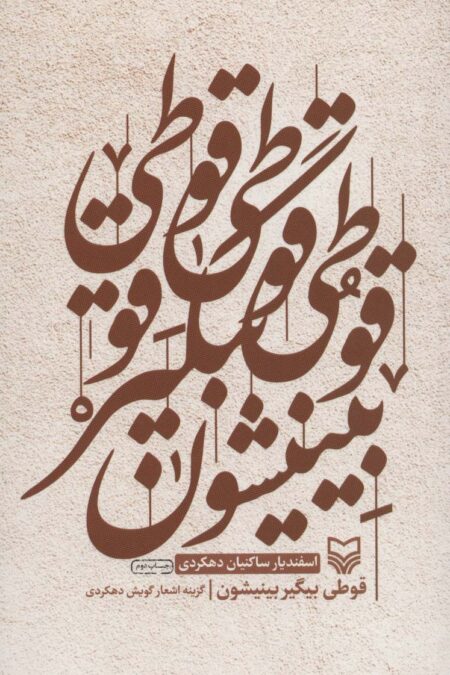 قوطی قوطی
قوطی قوطی
بینیشون
اسفندیار ساکنیان دهکردی
چاپ دوم
قوطی بیگیر بینیشون | گزینه اشعار گویش دهکردی